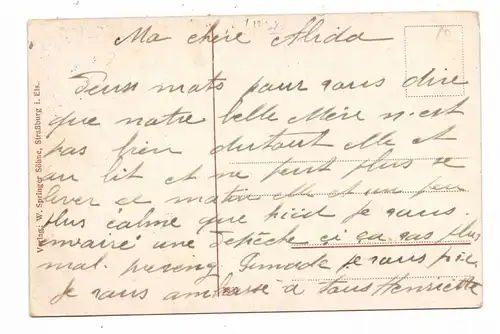 Ma chère Alida
Deux mots pour vous dire
que notre belle Mère n'est
pas bien du tout elle et
au lit et ne peut plus se
lever ce matin elle et un peu
plus calme que hier je vous
envairé une depêche si ça vas plus
mal. Prie je vous
je vous ambrasse à tous Henriette
Verlag: W. Springer Söhne, Straßburg i. Els.